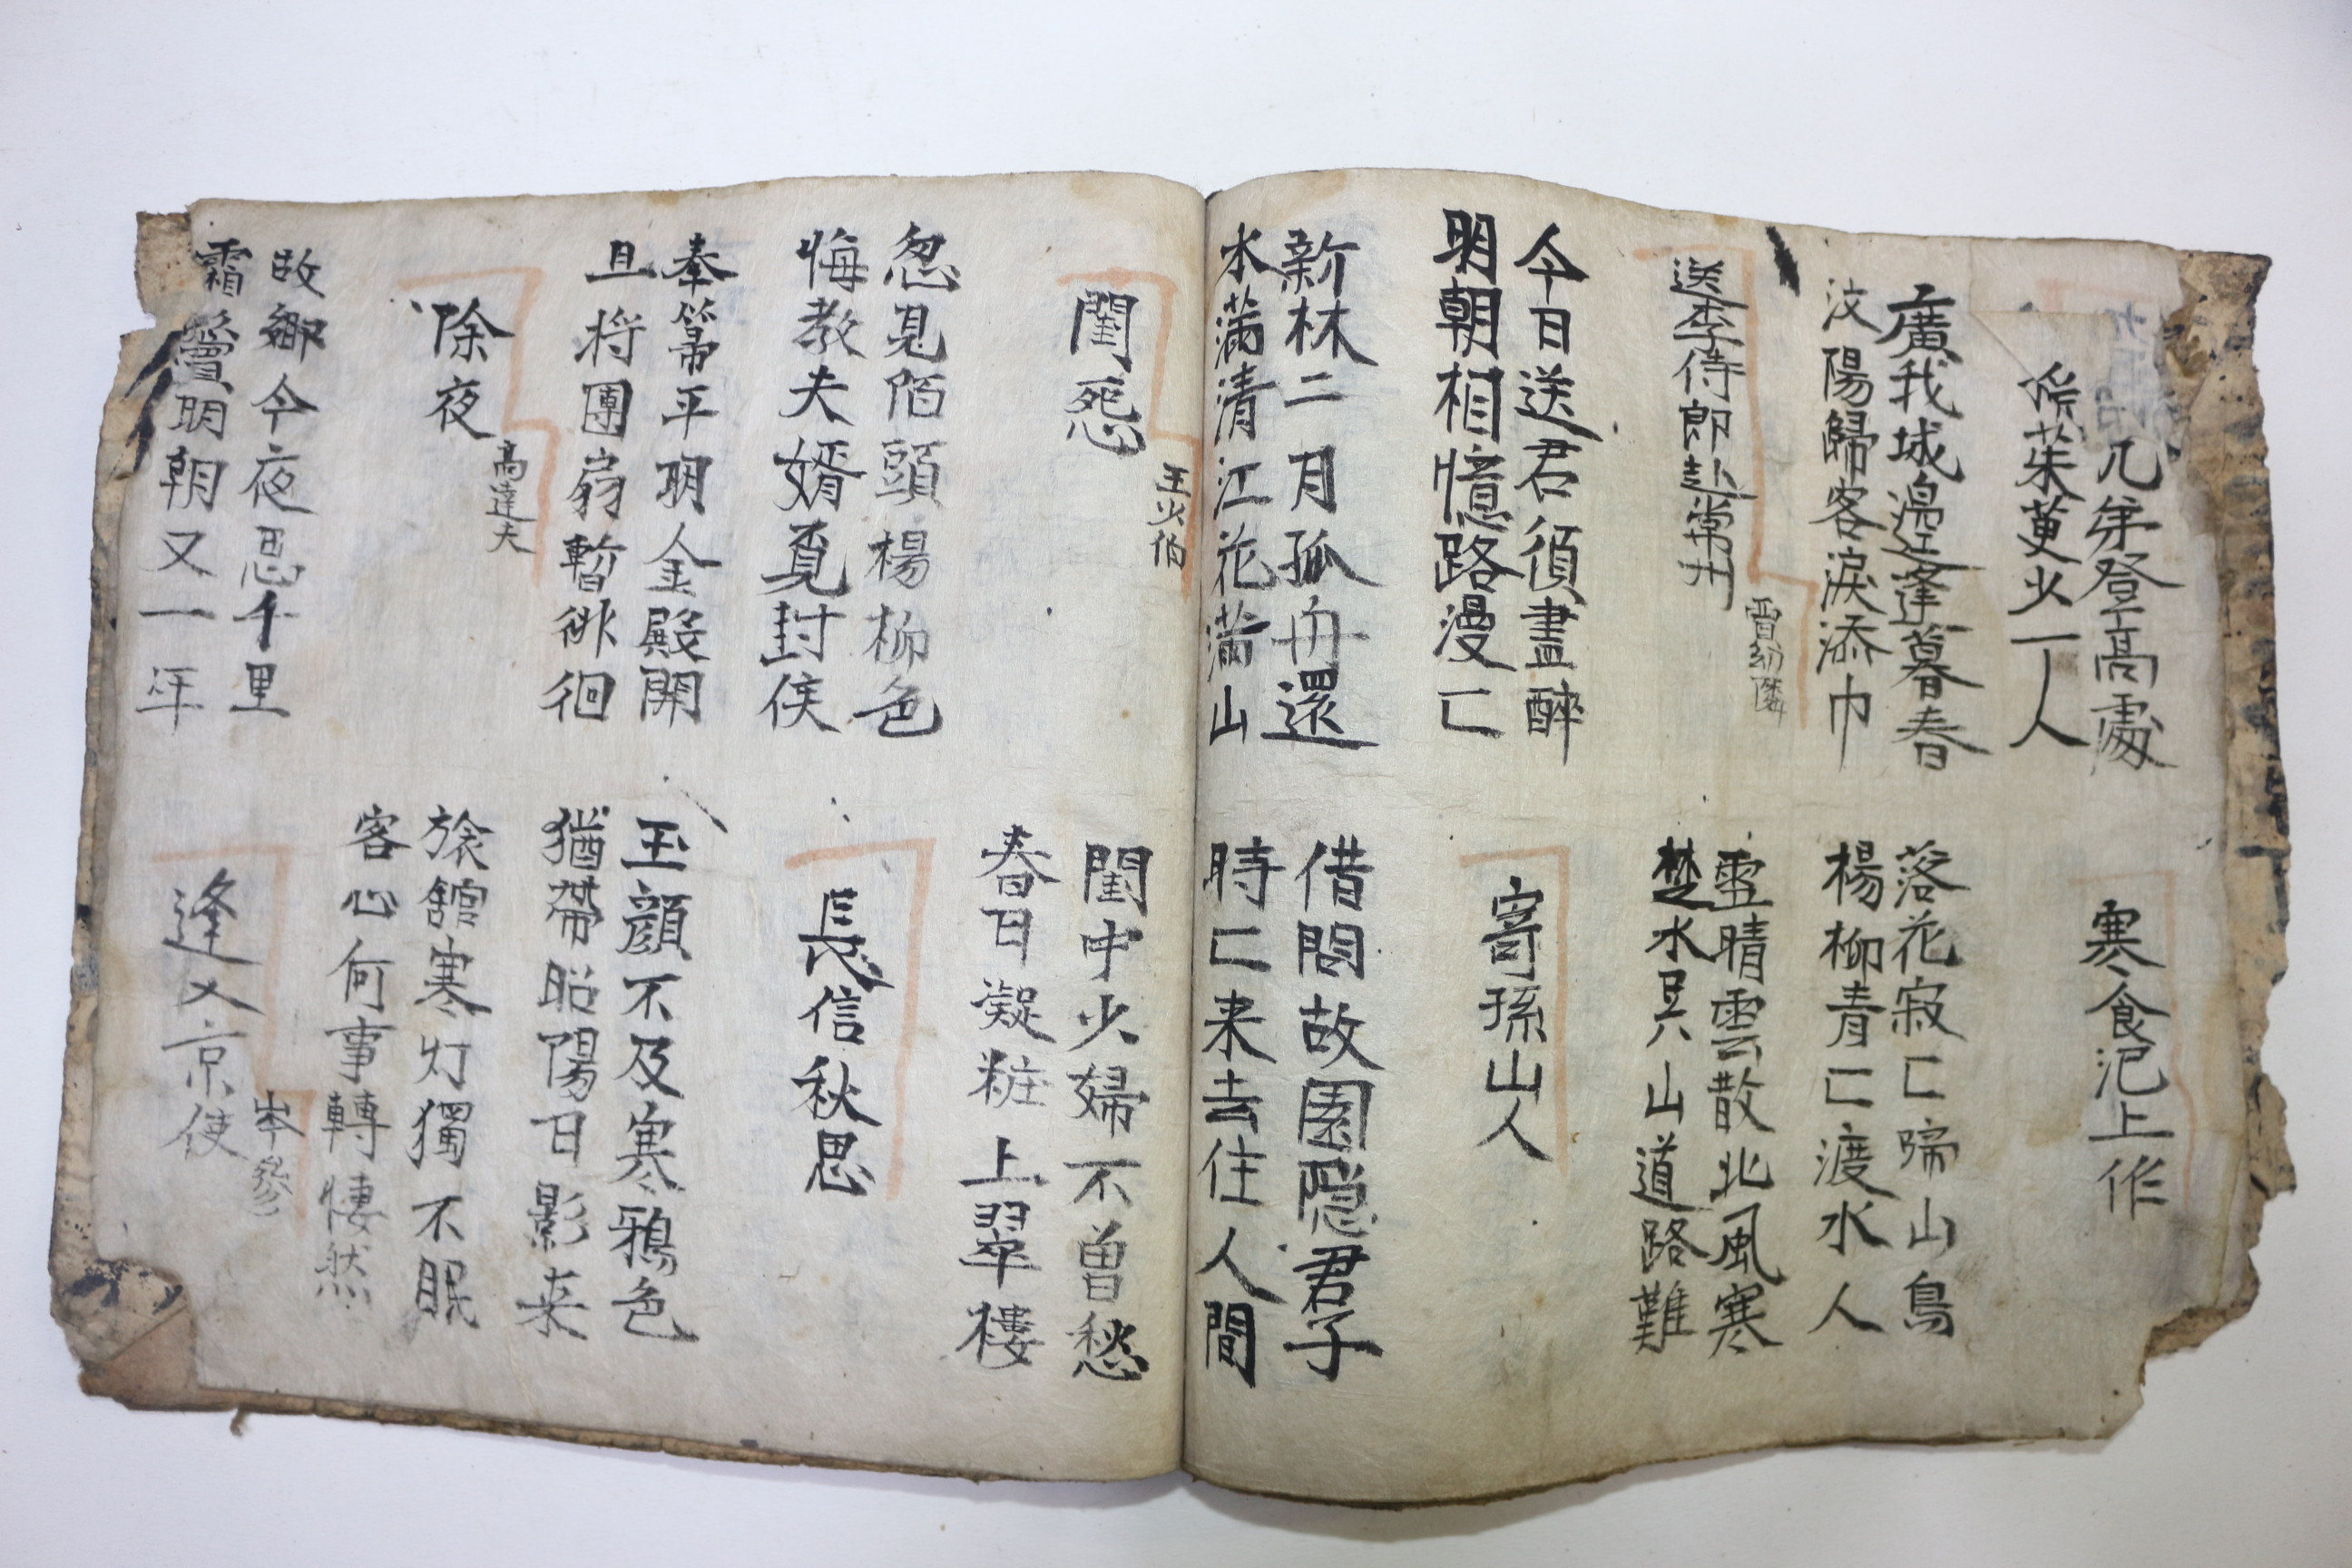 兄弟登高處
茱萸少一人
寒食汜上作
廣我城邊逢暮春
汶陽歸客淚添巾
落花寂々啼山鳥
楊柳青々渡水人
送李侍郎赴常州
賈幼隣
雪晴雲散北風寒
楚水吳山道路難
今日送君須盡醉
明朝相憶路漫々
寄孫山人
新林二月孤舟還
水滿清江花滿山
借問故園隱君子
時々来去住人間
閨怨
王少伯
閨中少婦不曽愁
春日凝粧上翠樓
忽見陌頭楊柳色
悔教夫婿覓封侯
長信秋思
奉箒平明金殿開
且将團扇暫徘徊
玉顔不及寒鴉色
猶帯昭陽日影来
除夜
高達夫
旅舘寒灯獨不眠
客心何事轉悽然
故鄉今夜思千里
霜鬢明朝又一年
逢入京使
岑參